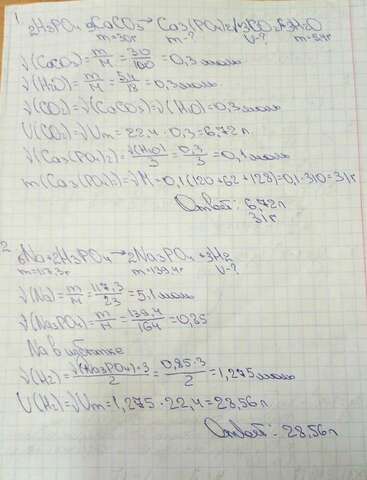 1
2H3PO4+3CaCO3→Ca3(PO4)2+3CO2+3H2O
m=30г m-? V-? m=5,4г
ν(CaCO3)=m/M=30/100=0,3моль
ν(H2O)=m/M=5,4/18=0,3моль
ν(CO2)=ν(CaCO3)=ν(H2O)=0,3моль
V(CO2)=νVm=22,4·0,3=6,72л
ν(Ca3(PO4)2)=ν(H2O)/3=0,3/3=0,1моль
m(Ca3(PO4)2)=νM=0,1(120+62+128)=0,1·310=31г
Ответ: 6,72л
31г
2
6Na+2H3PO4→2Na3PO4+3H2
m=117,3г m=139,4г V-?
ν(Na)=m/M=117,3/23=5,1моль
ν(Na3PO4)=m/M=139,4/164=0,85
Na в избытке
ν(H2)=ν(Na3PO4)·3/2=0,85·3/2=1,275моль
V(H2)=νVm=1,275·22,4=28,56л
Ответ: 28,56л